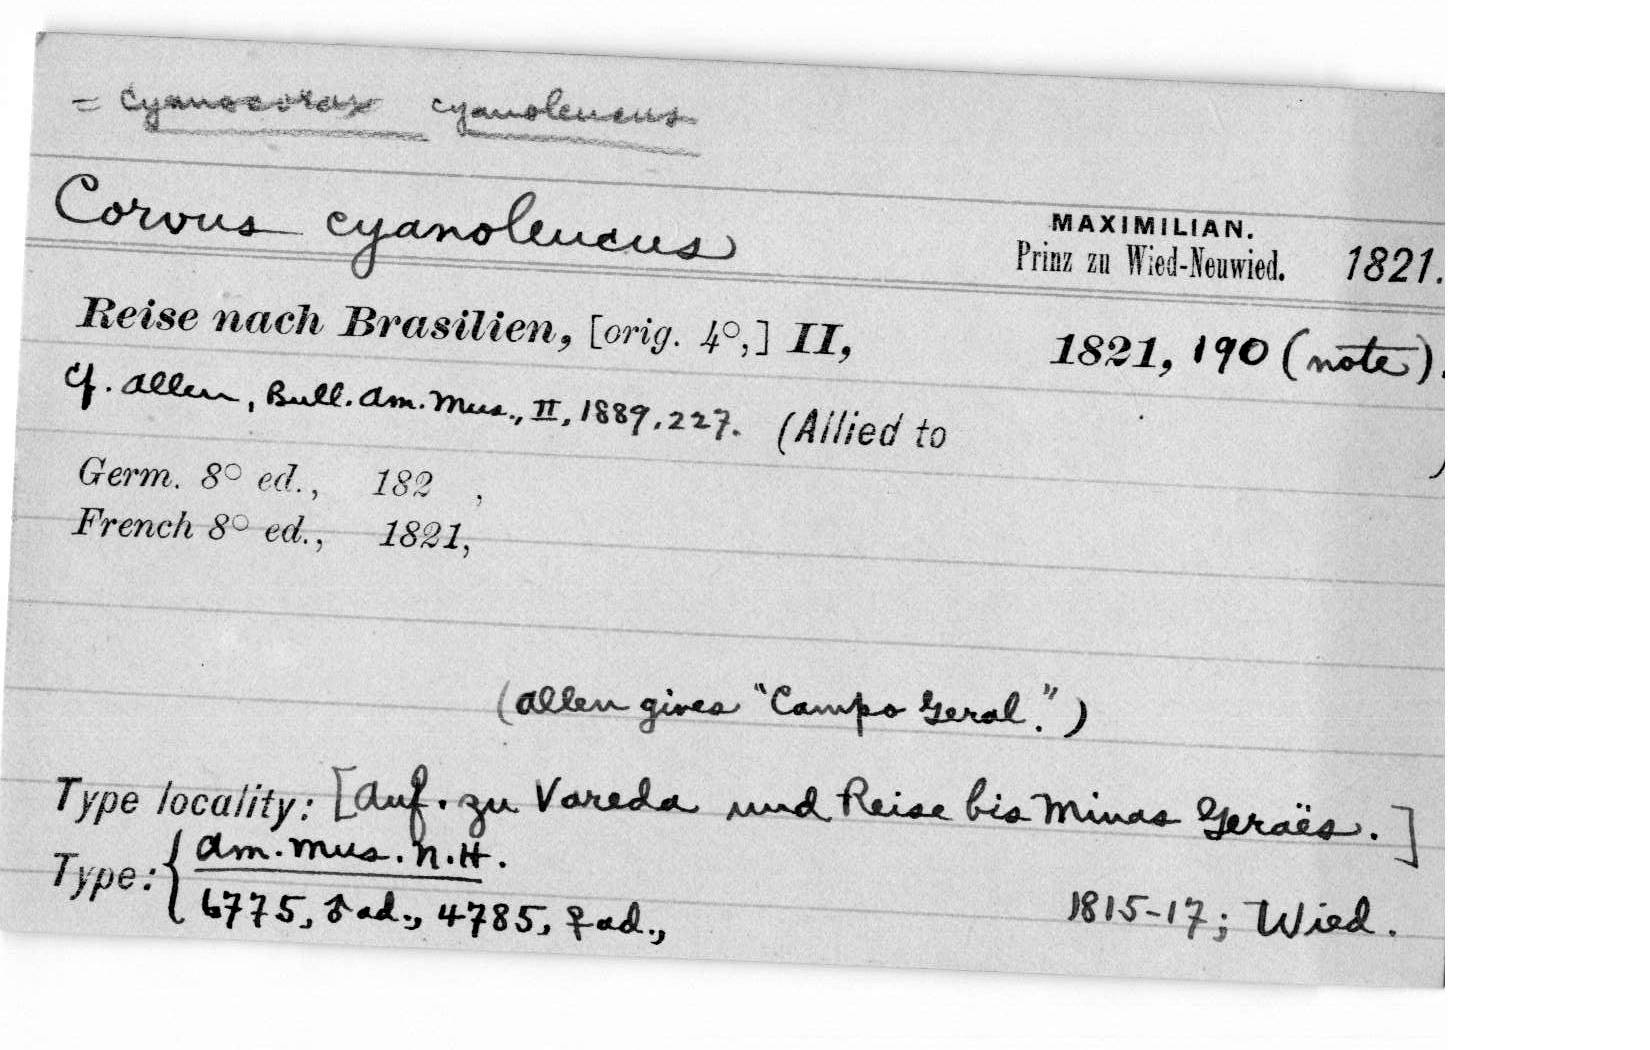 = Cyanocorax cyanoleucus
Corvus cyanoleucus MAXIMILIAN. Prinz zu Wied-Neuwied. 1821.
Reise nach Brasilien, [orig. 4º,] II, 1821, 190 (note).
Cf. Allen, Bull. Am. Mus., II, 1889, 227. (Allied to )
Germ. 8º ed., 182 ,
French 8º ed., 1821,
(Allen gives "Campo Geral.")
Type locality: [Auf. zu Vareda und Reise bis Minas Geraës.]
Type: { Am. Mus. N.H.
6775, ♂ ad., 4785, ♀ ad., 1815-17; Wied.